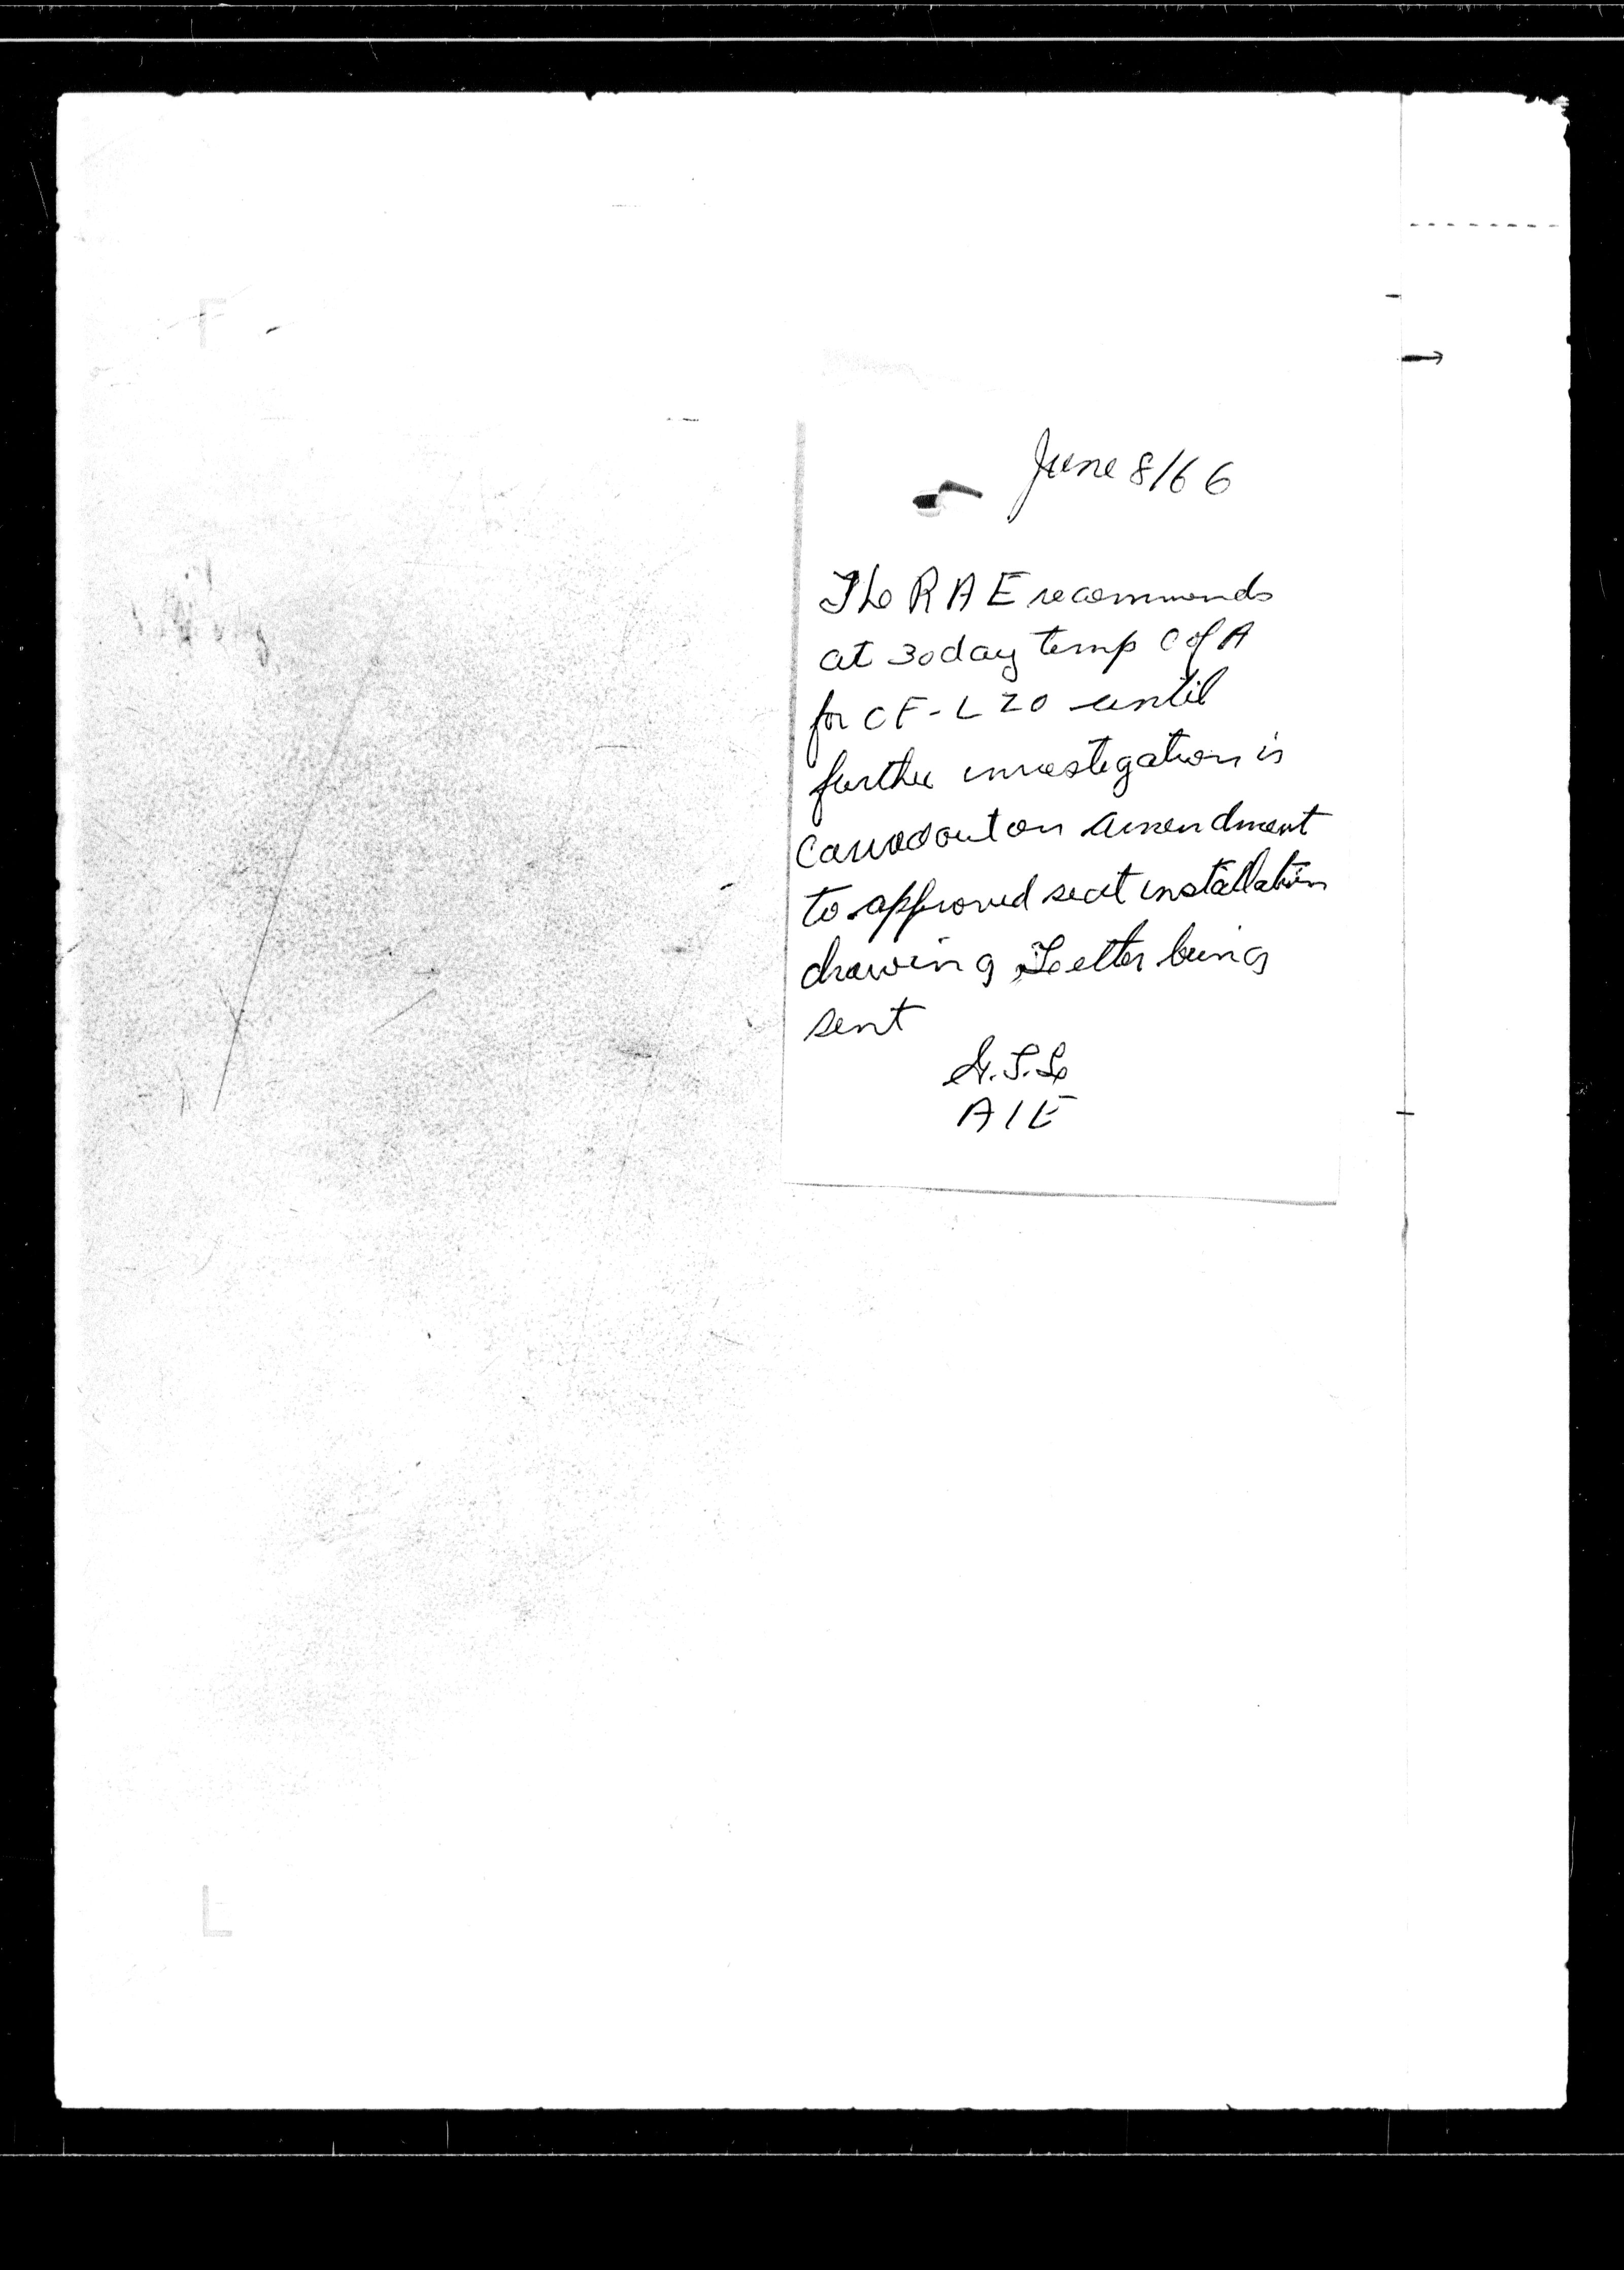 June 8/66
The R A E recommends
at 30 day temp C of A
for CF-LZO until
further investigation is
carried out on amendment
to approved seat installation
drawing Letter being
sent
A I E